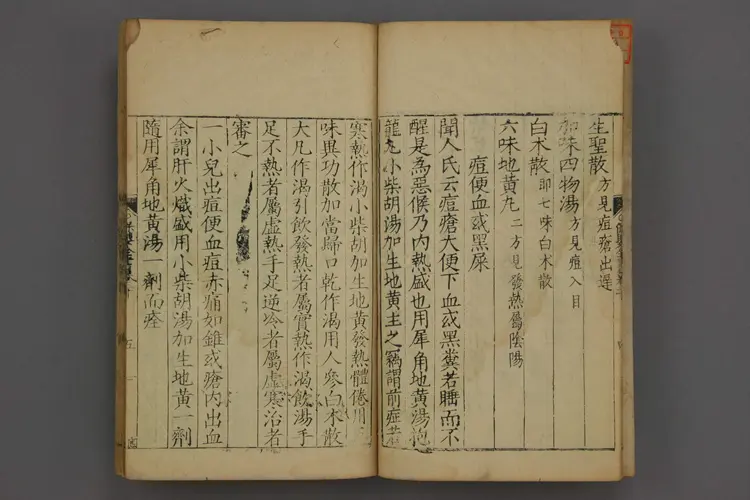 生聖散 方見痘瘡出遲
加味四物湯 方見痘入目
白朮散 即七味白朮散
六味地黃丸 二方見發熱屬陰陽
痘便血或黑屎
聞人氏云痘瘡大便下血或黑糞若睡而不
醒是為惡候乃內熱盛也用犀角地黃湯抱
龍丸小柴胡湯加生地黃主之竊謂前症若
寒熱作渴小柴胡加生地黃發熱體倦用
味異功散加當歸口乾作渴用人參白朮散
大凡作渴引飲發熱者屬實熱作渴飲湯手
足不熱者屬虛熱手足逆冷者屬虛寒治者
審之
一小兒出痘便血痘赤痛如錐或瘡內出血
余謂肝火熾盛用小柴胡湯加生地黃一劑
隨用犀角地黃湯一劑而痊
五